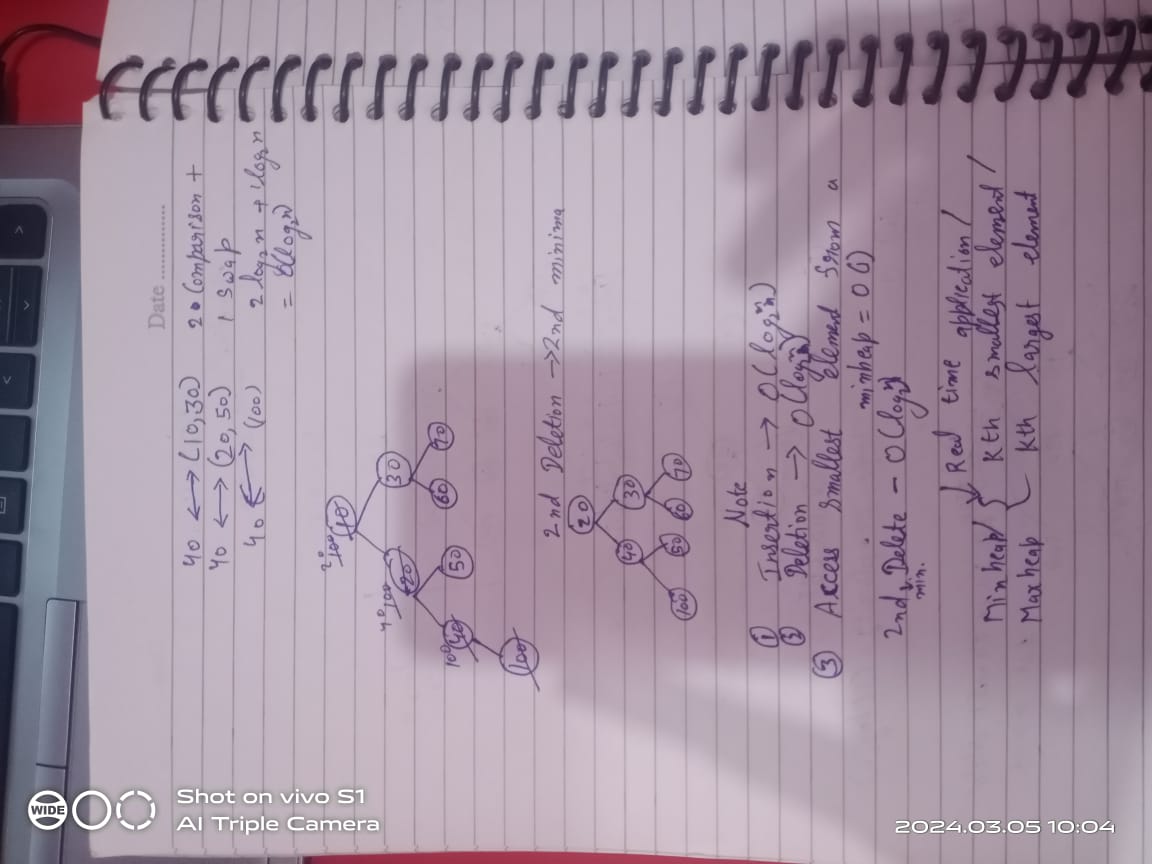 Date
40 ↔ (10,30) 2 Comparison +
40 ↔ (20,50) 1 Swap
40 ↔ (100) 2 log₂n + 1 log₂n
= O(log₂n)
20
100
10
30
40 100
20
50
60
70
100
40
100
2nd Deletion → 2nd minima
20
40
30
100
50
60
70
Note
① Insertion → O(log₂n)
② Deletion → O(log₂n)
③ Access smallest element from a
minheap = O(1)
2nd Delete – O(log₂n)
min.
Real time application/
Minheap/ { Kth smallest element/
Maxheap { Kth largest element
WIDE
Shot on vivo S1
AI Triple Camera
2024.03.05 10:04